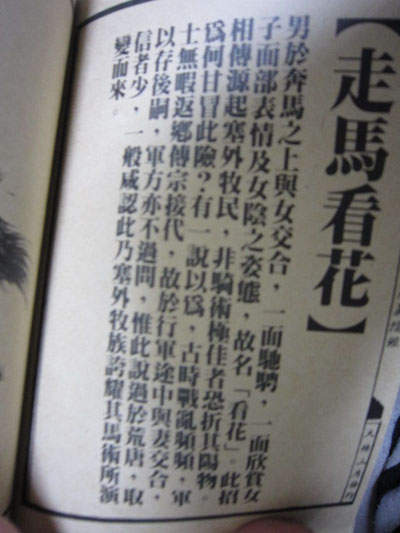 【走馬看花】
男於奔馬之上與女交合，一面馳騁，一面欣賞女
子面部表情及女陰之姿態，故名「看花」。此招
相傳源起塞外牧民，非騎術極佳者恐折其陽物。
為何甘冒此險？有一說以為，古時戰亂頻頻，軍
士無暇返鄉傳宗接代，故於行軍途中與妻交合，
以存後嗣，軍方亦不過問，惟此說過於荒唐，取
信者少，一般咸認此乃塞外牧族誇耀其馬術所演
變而來。